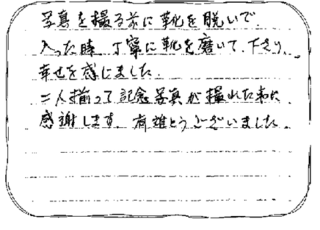 写真を撮る前に靴を脱いで
入った時丁寧に靴を磨いて下さり、
幸せを感じました.
二人揃って記念写真が撮れた事に
感謝します 有難とうございました